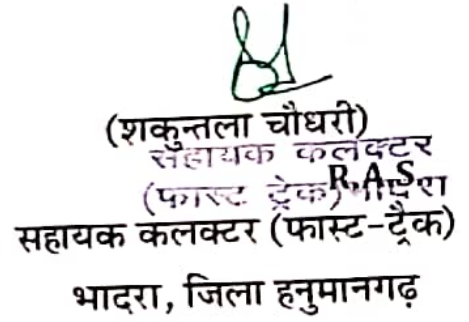 (शकुन्तला चौधरी)
सहायक कलक्टर
(फास्ट ट्रेक) R.A.S.
सहायक कलक्टर (फास्ट-ट्रैक)
भादरा, जिला हनुमानगढ़